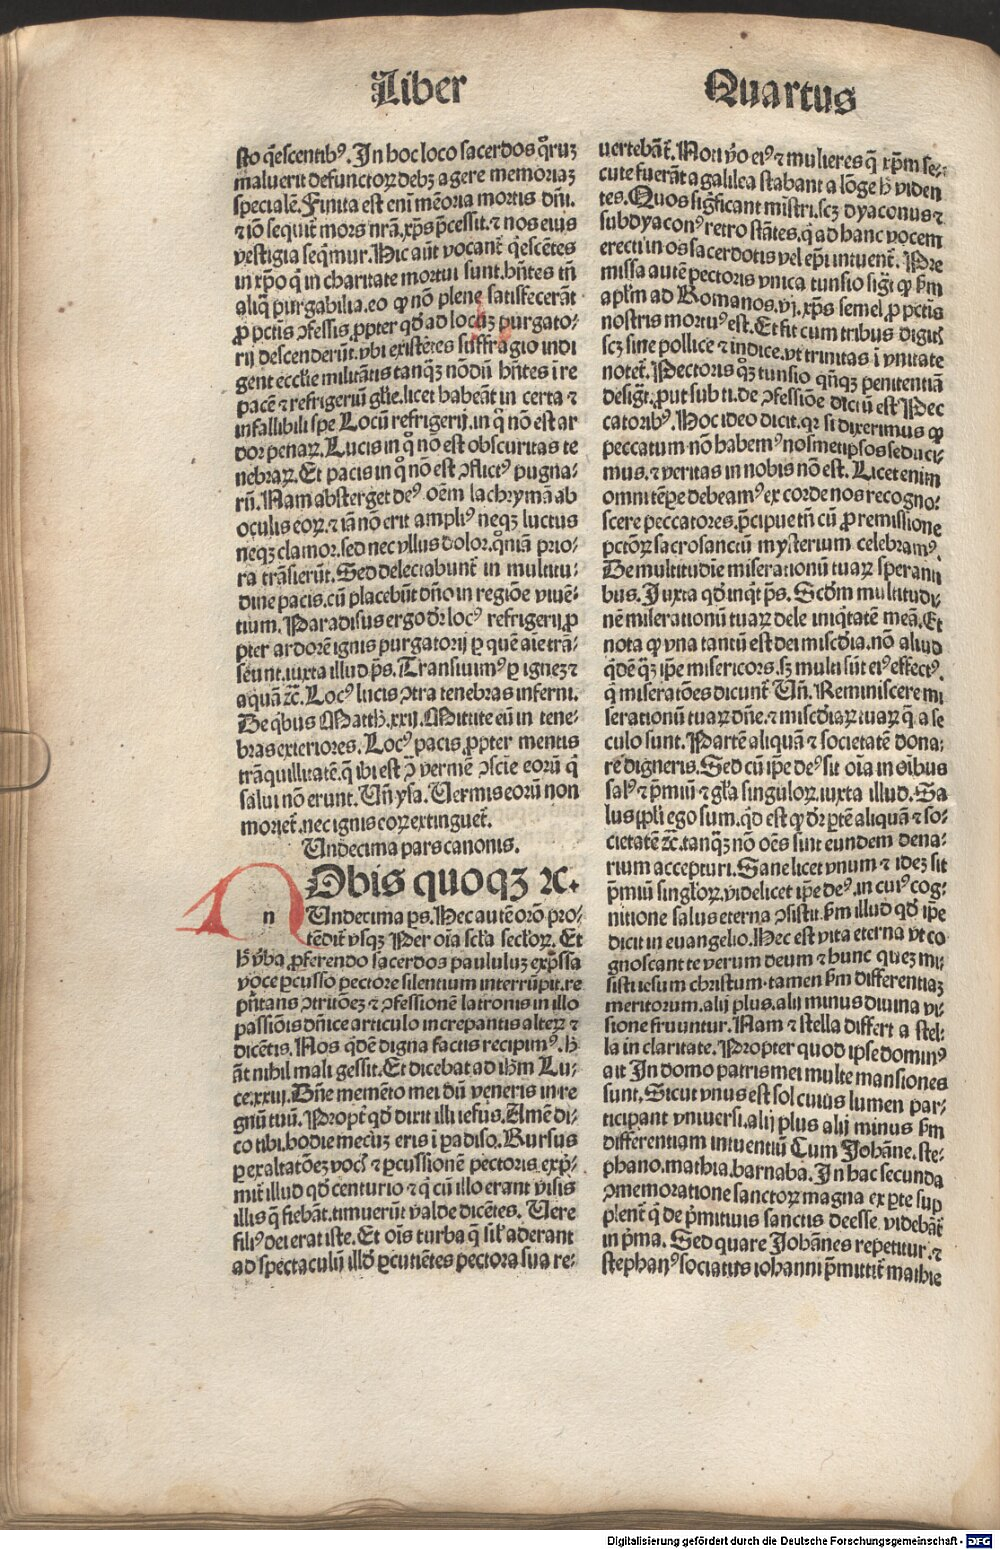 Liber Quartus
sto q̄escentib⁹. In hoc loco sacerdos q̊ruꝫ
maluerit defunctoꝝ debꝫ agere memoriaꝫ
specialē. Finita est eni mēoria mortis dn̄i.
⁊ iō sequit̄ mors nr̄a. xp̄s p̄cessit. ⁊ nos eius
vestigia seq̄mur. Hic aūt vocant̄ q̄escētes
in xp̄o q̇ in charitate mortui sunt. hn̄tes tn̄
aliq̄ purgabilia. eo ꝙ nō plene satisfecerāt
ꝓ pctīs ꝯfessis. ꝓpter qd̄ ad locuꝫ purgato⸗
rij descenderūt. vbi existētes suffragio indi
gent eccl̄ie militātis tanq̄ꝫ nōdū hn̄tes ī re
pacē ⁊ refrigeriū gl̄ie. licet habeāt in certa ⁊
infallibili spe Locū refrigerij. in q̊ nō est ar
dor penaꝝ. Lucis in q̊ nō est obscuritas te
nebraꝝ. Et pacis in q̊ nō est ꝯflict⁹ pugna⸗
rū. Nam absterget de⁹ oēm lachrymā ab
oculis eoꝝ. ⁊ iā nō erit ampli⁹ neqꝫ luctus
neqꝫ clamor. sed nec vllus dolor. q̊niā prio⸗
ra trāsierūt. Sed delectabunt̄ in multitu⸗
dine pacis. cū placebūt dn̄o in regiōe viuē⸗
tium. Paradisus ergo dr̄ loc⁹ refrigerij ꝓ
pter ardorē ignis purgatorij ꝑ quē aīe trā⸗
seunt. iuxta illud ps̄. Transiuim⁹ ꝑ ignez ⁊
aquā ⁊c̄. Loc⁹ lucis ꝯtra tenebras inferni.
De qb̄us Matth̄. xxij. Mittite eū in tene⸗
bras exteriores. Loc⁹ pacis ꝓpter mentis
trāquillitatē. q̄ ibi est ꝯ̄ vermē ꝯscīe eorū q̇
salui nō erunt. Vn̄ ysa. Vermis eorū non
moriet̄. nec ignis eoꝝ extinguet̄.
Undecima pars canonis.
Obis quoqꝫ ⁊c.
n Undecima ps̄. Hec autē orō pro⸗
tēdit̄ vsqꝫ Per oīa scl̄a secl̄oꝝ. Et
h̄ v̄ba ꝓferendo sacerdos paululuꝫ exp̄ssa
voce ꝑcusso pectore silentium interrūpit. re
pn̄tans ꝯtritōeꝫ ⁊ ꝯfessionē latronis in illo
passiōis dn̄ice articulo increpantis alteꝝ ⁊
dicētis. Nos qdē digna factis recipim⁹. h̄
āt nihil mali gessit. Et dicebat ad ih̄m Lu⸗
ce. xxiij. Dn̄e memēto mei dū veneris in re
gnū tuū. Propt̄ qd̄ dixit illi iesus. Amē di⸗
co tibi. hodie mecūꝫ eris ī ꝑadiso. Rursus
ꝑ exaltatōeꝫ voc̄ ⁊ ꝑcussionē pectoris exp̄⸗
mit̄ illud qd̄ centurio ⁊ q̇ cū illo erant visis
illis q̄ fiebāt. timuerūt valde dicētes. Vere
fili⁹ dei erat iste. Et oīs turba q̄ sil̄ aderant
ad spectaculū illd̄ ꝑcutiētes pectora sua re⸗
vertebāt̄. Noti v̄o ei⁹ ⁊ mulieres q̄ xp̄m se⸗
cute fuerāt a galilea stabant a lōge h̄ viden
tes. Quos sigꝰficant mīstri. scꝫ dyaconus ⁊
subdyacon⁹ retro stātes. q̇ ad hanc vocem
erecti in os sacerdotis vel ep̄i intuent̄. Pre
missa autē pectoris vnica tunsio sigt̄ ꝙ ẜm
apl̄m ad Romanos. vj. xp̄s semel ꝓ pctīs
nostris mortu⁹ est. Et fit cum tribus digitꝭ
scꝫ sine pollice ⁊ indice. vt trinitas ī vnitate
notet̄. Pectoris q̊ꝫ tunsio qn̄qꝫ penitentiā
desigt̄. put̄ sub ti. de ꝯfessiōe dictū est Pec
catorib⁹. Hoc ideo dicit. qr si dixerimus ꝙ
peccatum nō habem⁹ nosmetipsos seduci⸗
mus. ⁊ veritas in nobis nō est. Licet enim
omni tēpe debeam⁹ ex corde nos recogno⸗
scere peccatores. p̄cipue tn̄ cū ꝓ remissione
pctōꝝ sacrosanctū mysterium celebram⁹.
De multitudīe miserationū tuaꝝ speranti
bus. Iuxta qd̄ inqt̄ ps̄. Scdm̄ multitudi⸗
nē miserationū tuaꝝ dele iniqtatē meā. Et
nota ꝙ vna tantū est dei miscd̄ia. nō aliud
q̄dē q̄ꝫ ip̄e misericors. sꝫ multi sūt ei⁹ effect⁹.
q̇ miseratōes dicunt̄ Vn̄. Reminiscere mi
serationū tuaꝝ dn̄e. ⁊ miscd̄iaꝝ tuaꝝ q̄ a se
culo sunt. Partē aliquā ⁊ societatē dona⸗
re digneris. Sed cū ip̄e de⁹ sit oīa in oībus
sal⁹ ⁊ p̄miū ⁊ gl̄a singuloꝝ. iuxta illud. Sa
lus ppl̄i ego sum. qd est ꝙ dr̄ ꝑtē aliquā ⁊ so⸗
cietatē ⁊c̄. tanq̄ꝫ nō oēs sint eundem dena⸗
rium accepturi. Sane licet vnum ⁊ ideꝫ sit
p̄miū singl̄oꝝ. videlicet ip̄e de⁹. in cui⁹ cog⸗
nitione salus eterna ꝯsistit. ẜm illud qd̄ ip̄e
dicit in euangelio. Hec est vita eterna vt co
gnoscant te verum deum ⁊ hunc quez mi⸗
sisti iesum christum. tamen ẜm differentiaꝫ
meritorum. alij plus. alij minus diuina vi⸗
sione fruuntur. Nam ⁊ stella differt a stel⸗
la in claritate. Propter quod ipse domin⁹
ait In domo patris mei multe mansiones
sunt. Sicut vnus est sol cuius lumen par⸗
ticipant vniuersi. alij plus alij minus ẜm
differentiam intuentiū Cum Johāne. ste⸗
phano. mathia. barnaba. In hac secunda
ꝯmemoratione sanctoꝝ magna ex ꝑte sup
plent̄ q̇ de p̄mitiuis sanctis deesse videbāt̄
in p̄ma. Sed quare Johānes repetitur. ⁊
stephan⁹ sociatus iohanni p̄mittit̄ mathie
Digitalisierung gefördert durch die Deutsche Forschungsgemeinschaft - DFG